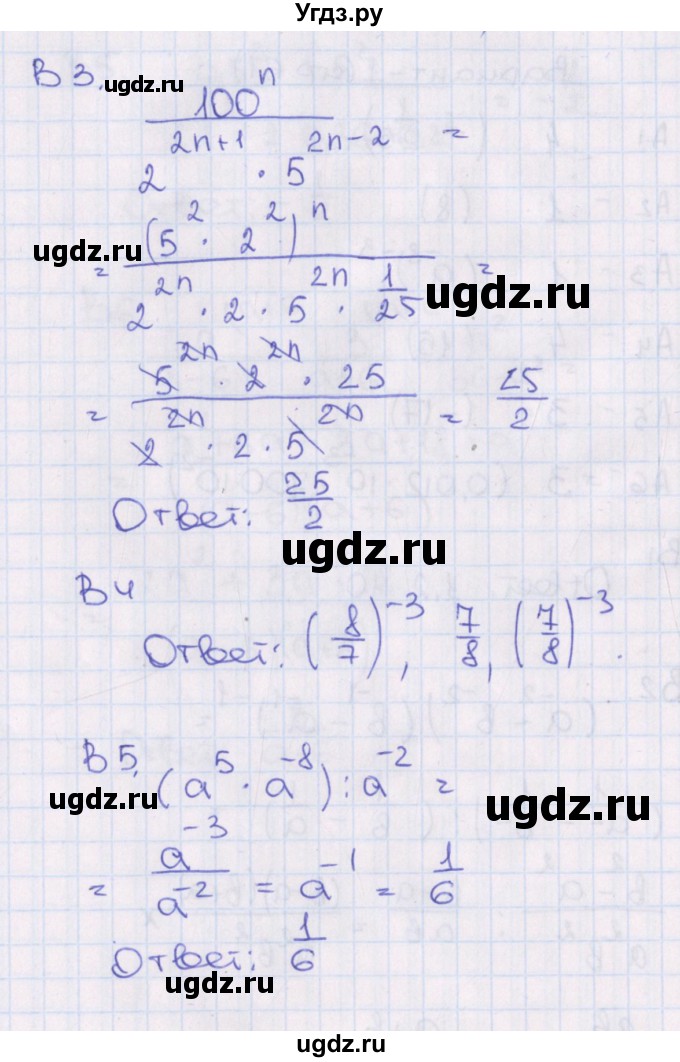 Угдз.ру
В 3. ugdz.ru
100^n / (2^(2n+1) · 5^(2n-2)) =
ugdz.ru
= (5^2 · 2^2)^n / (2^(2n) · 2 · 5^(2n) · 1/25) =
ugdz.ru
= (5^(2n) · 2^(2n) · 25) / (2^(2n) · 2 · 5^(2n)) = 25/2
Ответ: 25/2
ugdz.ru
В 4
Ответ: (8/7)^(-3), 7/8, (7/8)^(-3).
В 5. (a^5 · a^(-8)) : a^(-2) =
ugdz.ru ugdz.ru
= a^(-3) / a^(-2) = a^(-1) = 1/6
Ответ: 1/6
ugdz.ru
ugdz.ru